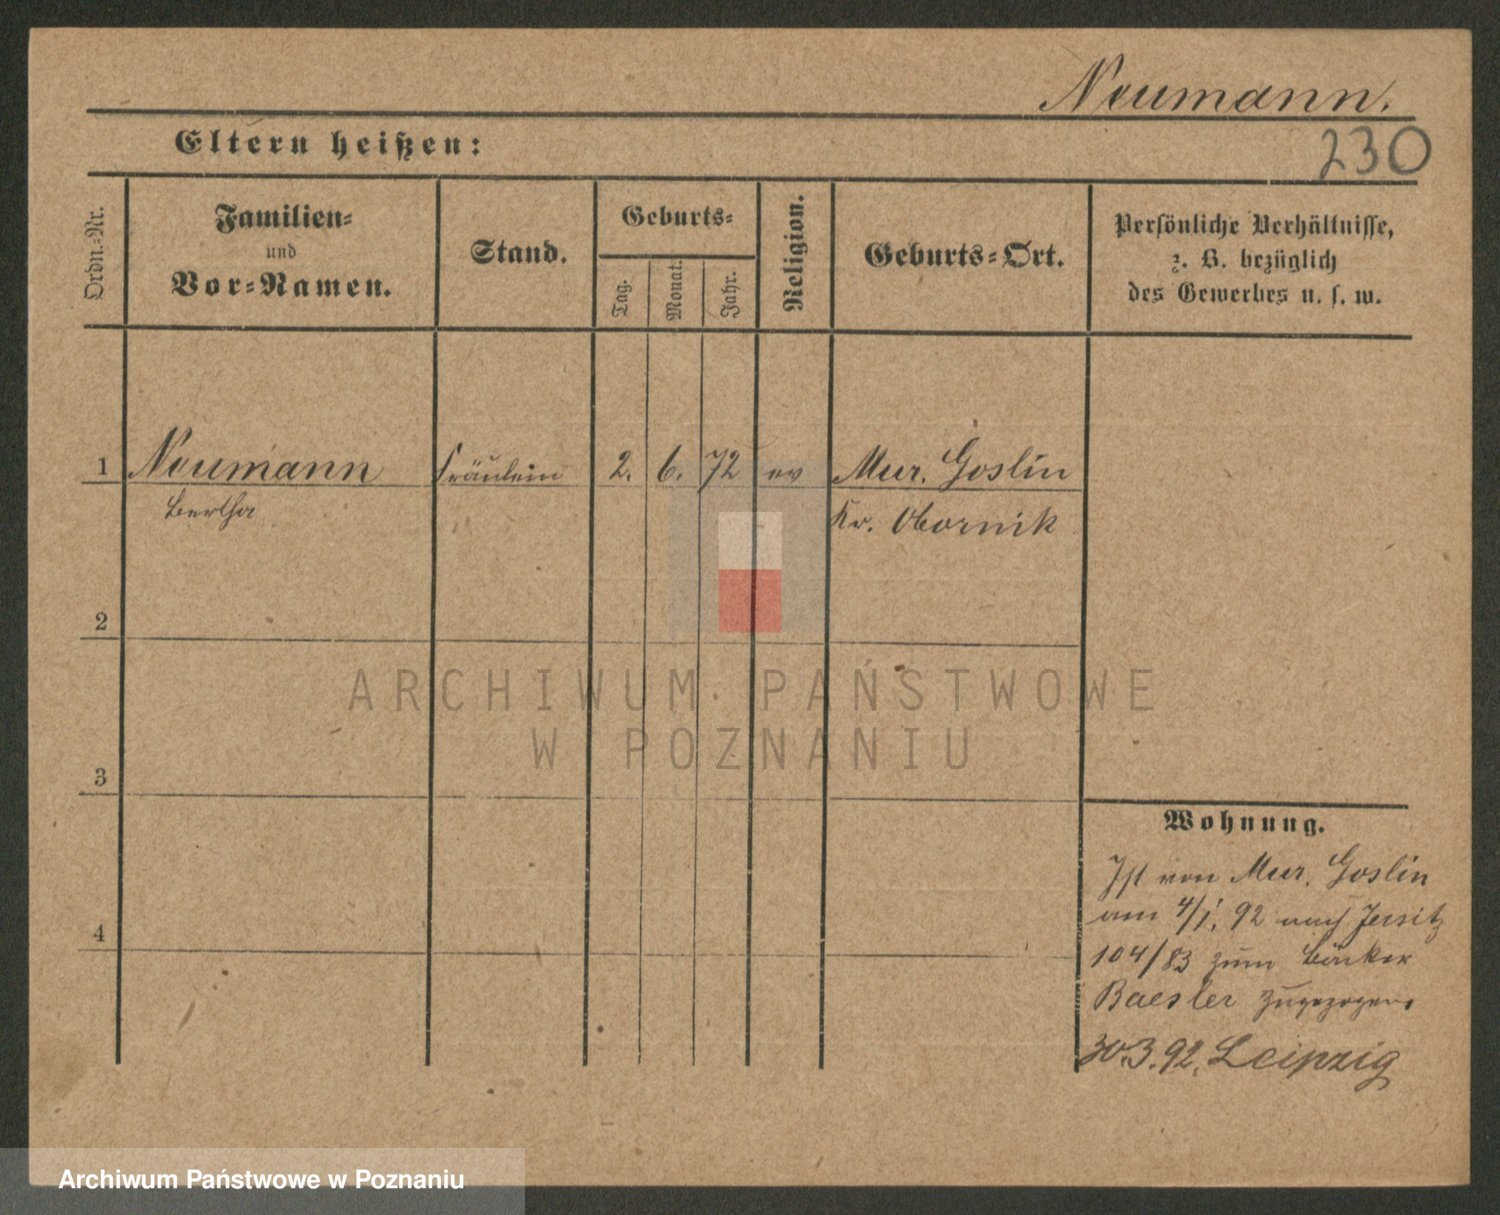 Neumann.
230
Eltern heißen:
Ordn.-Nr.
Familien-
und
Vor-Namen.
Stand.
Geburts-
Tag.
Monat.
Jahr.
Religion.
Geburts-Ort.
Persönliche Verhältnisse,
z. B. bezüglich
des Gewerbes u. s. w.
1 Neumann Fräulein 2. 6. 72 ev Mur. Goslin
Bertha Kr. Obornik
2
3
4
Wohnung.
Ist von Mur. Goslin
am 4/1. 92 nach Jersitz
104/83 zum Bäcker
Baesler zugezogen.
30.3.92. Leipzig
ARCHIWUM PAŃSTWOWE
W POZNANIU
Archiwum Państwowe w Poznaniu